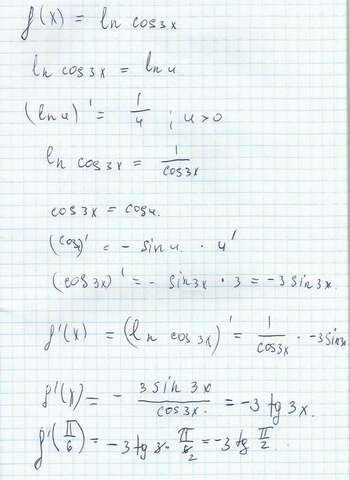 f(x) = ln cos3x
ln cos3x = ln u
(ln u)' = 1/u ; u>0
ln cos3x = 1/cos3x
cos3x = cosu.
(cos)' = - sinu. · u'
(cos3x)' = - sin3x · 3 = -3sin3x.
f'(x) = (ln cos3x)' = 1/cos3x · -3sin3x
f'(x) = - 3sin3x/cos3x. = -3 tg 3x.
f'(π/6) = -3 tg 3· π/6 2 = -3 tg π/2.